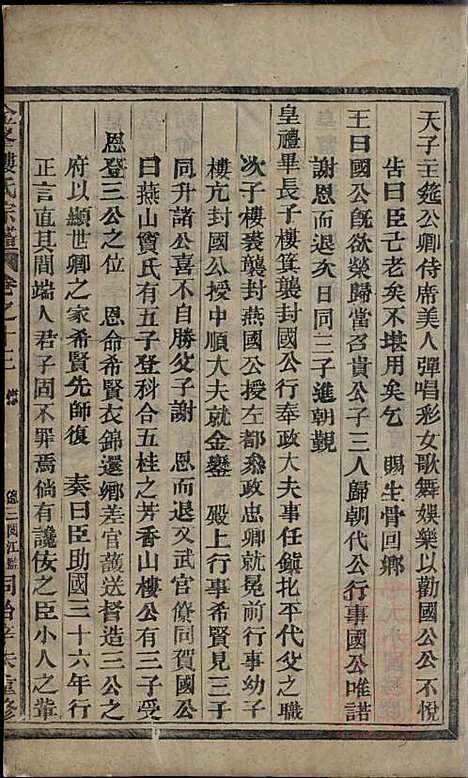 天子主筵公卿侍席美人彈唱彩女歌舞娛樂以勸國公公不悅
告曰臣已老矣不堪用矣乞　賜生骨回鄉
王曰國公旣欲榮歸當召貴公子三人歸朝代公行事國公唯諾
謝恩而退次日同三子進朝覲
皇禮畢長子樓箕襲封國公行奉政大夫事任鎭北平代父之職
次子樓裘襲封燕國公授左都叅政忠卿就冕前行事幼子
樓亢封國公授中順大夫就金鑾　殿上行事希賢見三子
同升諸公喜不自勝父子謝　恩而退文武官僚同賀國公
曰燕山竇氏有五子登科合五桂之芳香山樓公有三子受
恩登三公之位　恩命希賢衣錦還鄉差官護送督造三公之
府以顯世卿之家希賢先師復　奏曰臣助國三十六年行
正言直其間端人君子固不罪焉倘有讒佞之臣小人之輩
樓氏宗譜　卷之十二　同治辛未重修